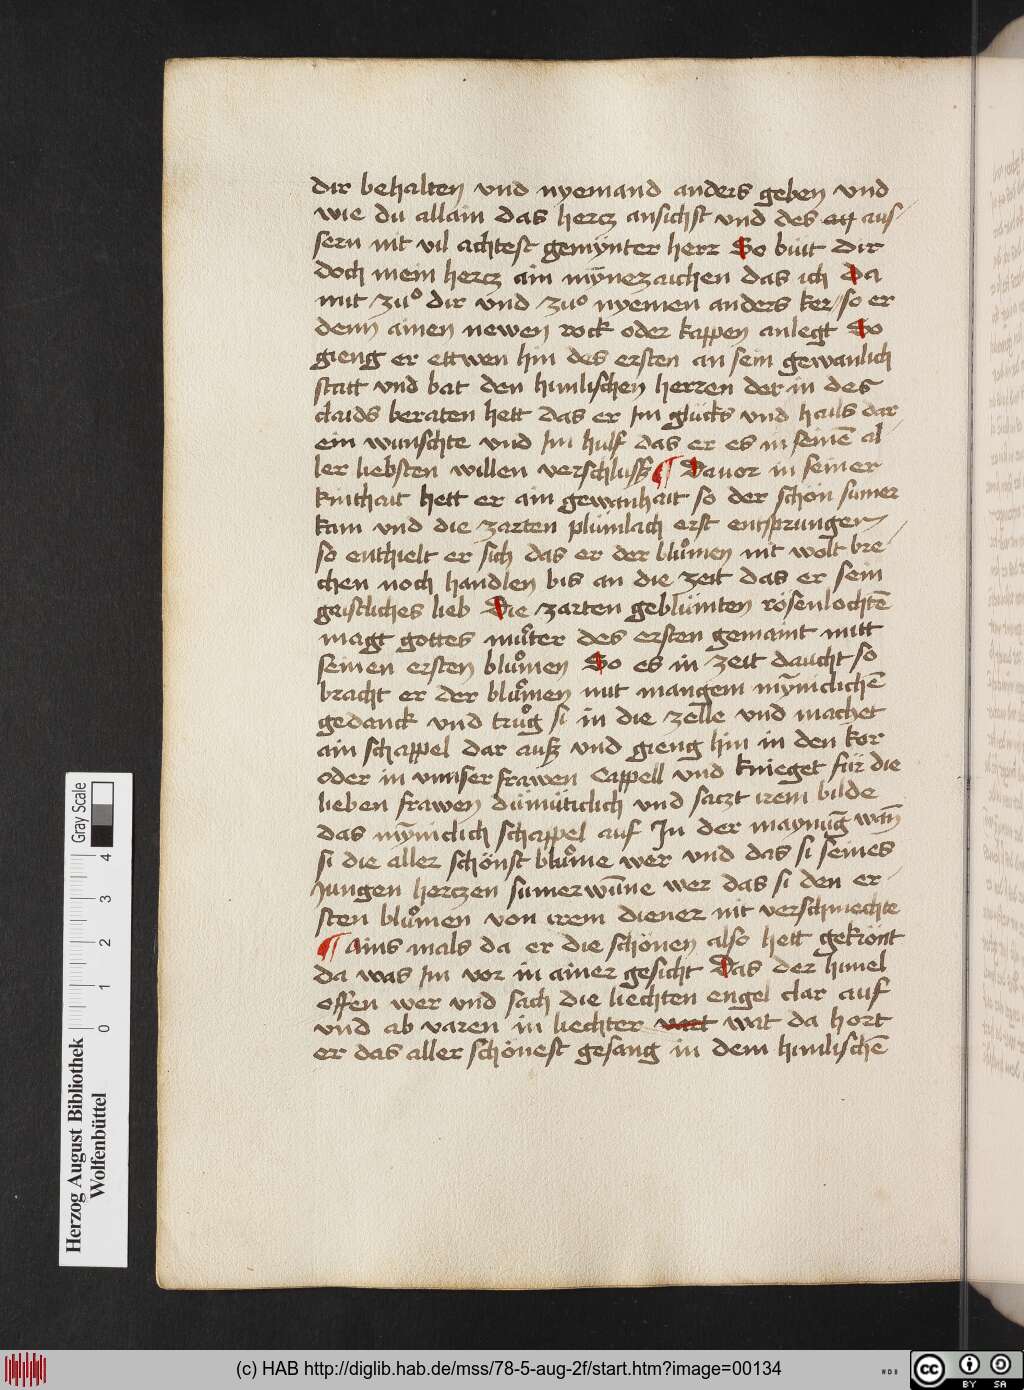 dir behalten vnd nyemand anders geben vnd
wie du allain das hercz ansichst vnd des aus/
sern nit vil achtest gemÿnter herr So büit dir
doch mein hercz ain mÿnezaichen das ich Da
mit zuͦ dir vnd zuͦ nyemen anders ker // so er
denn ainen newen rock oder kappen anlegt So
gieng er ettwen hin des ersten an sein gewanlich
statt vnd bat den himlischen herren der in des
claids beraten hett das er Im glücks vnd hails dar
ein wunschte vnd Im hulf das er es in seinē al/
ler liebsten willen verschluss ¶ Dauor in seiner
kinthait hett er ain gewanhait so der schön sumer
kam vnd die zarten plümlach erst entsprungen
so enthielt er sich das er der bluͦmen nit wolt bre/
chen noch handlen bis an die zeit das er sein
geistliches lieb Die zarten geblümten rösenlochtē
magt gottes muͦter des ersten gemaint mitt
seinen ersten bluͦmen So es in zeit daucht so
bracht er der bluͦmen mit mangem mÿniclichē
gedanck vnd truͦg si in die zelle vnd machet
ain schappel dar ausz vnd gieng hin in den kor
oder in vnnser frawen Cappell vnd knieget für die
lieben frawen dümüticlich vnd saczt irem bilde
das mÿniclich schappel auf In der maynūg wān
si die aller schönst bluͦme wer vnd das si seines
Jungen herczen sumerwūne wer das si den er/
sten bluͦmen von irem diener nit verschmechte
¶ Ains mals da er die schönen also hett gekrönt
da was Im vor in ainer gesicht Das der himel
offen wer vnd sach die liechten engel clar auf
vnd ab varen in liechter wat da hort
er das aller schönest gesang in dem himlischē
Herzog August Bibliothek
Wolfenbüttel
Gray Scale
0 1 2 3 4
(c) HAB http://diglib.hab.de/mss/78-5-aug-2f/start.htm?image=00134
cc BY SA